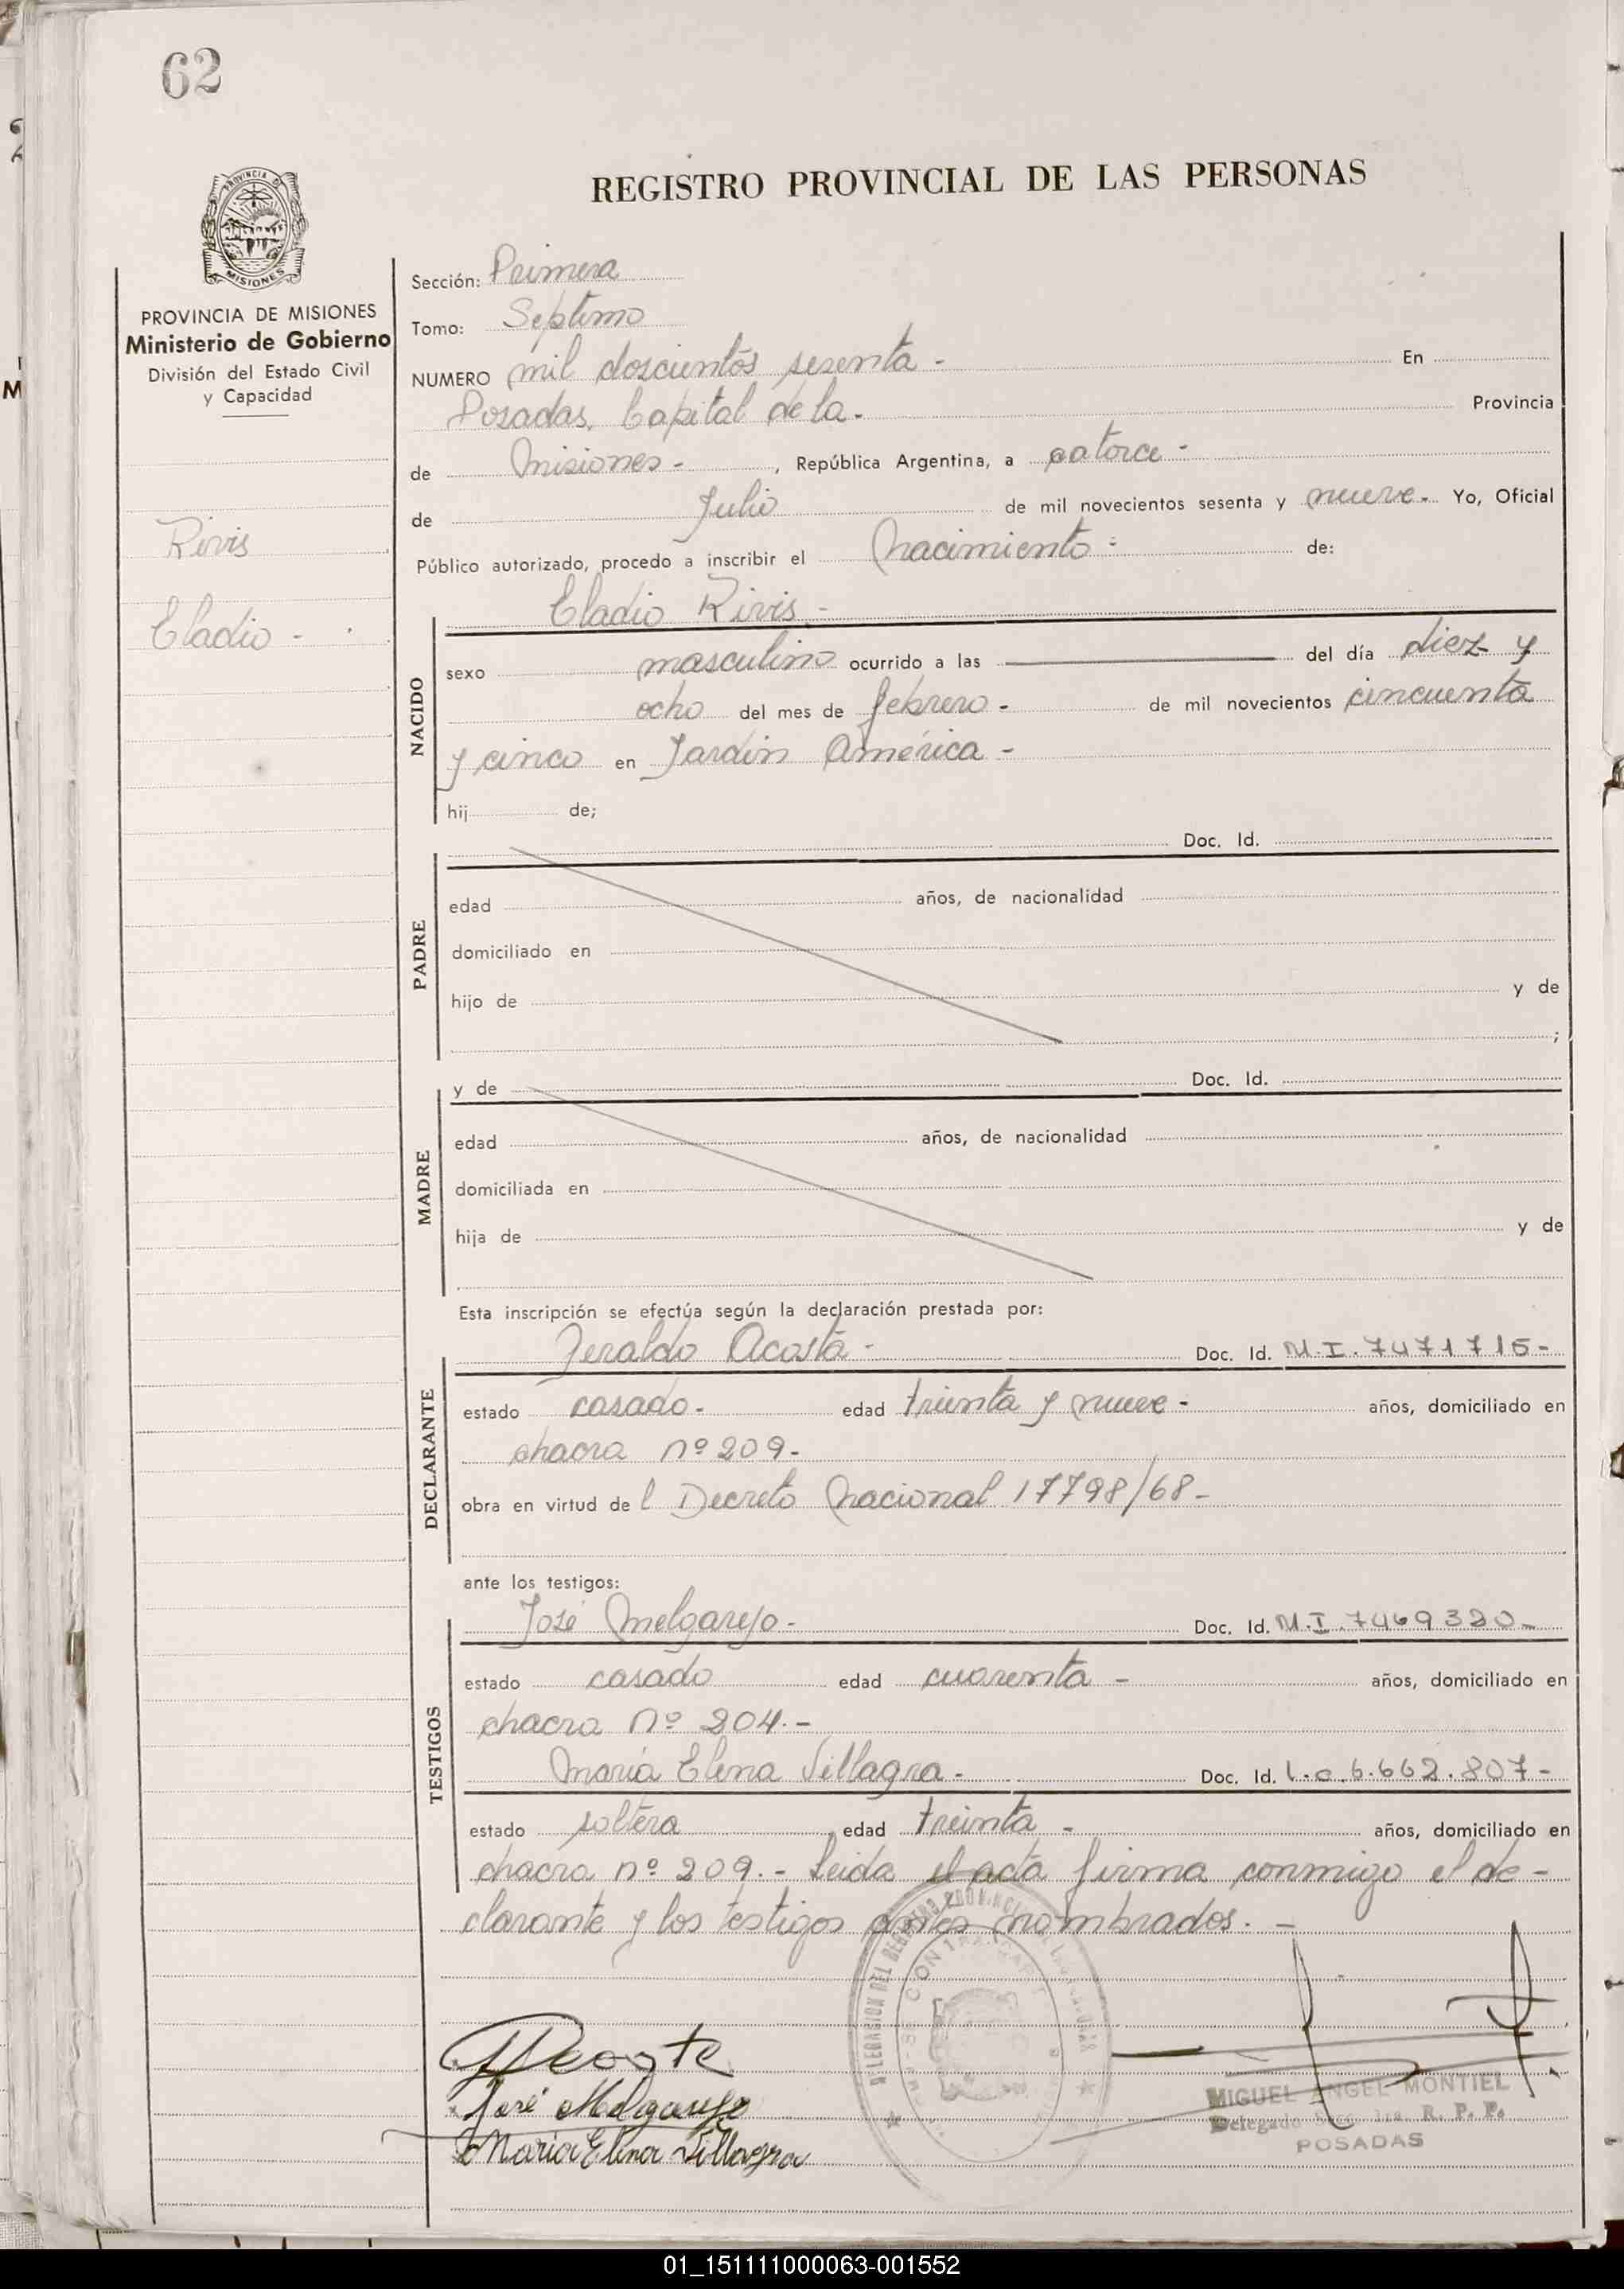 62
REGISTRO PROVINCIAL DE LAS PERSONAS
PROVINCIA DE
MISIONES
PROVINCIA DE MISIONES
Ministerio de Gobierno
División del Estado Civil
y Capacidad
Rivis
Eladio -
Sección: Primera
Tomo: Septimo
NUMERO mil doscientos sesenta - En
Posadas, Capital de la - Provincia
de Misiones - , República Argentina, a catorce -
de Julio de mil novecientos sesenta y nueve - Yo, Oficial
Público autorizado, procedo a inscribir el Nacimiento - de:
Eladio Rivis -
NACIDO
sexo masculino ocurrido a las ——— del día diez y
ocho del mes de febrero - de mil novecientos cincuenta
y cinco en Jardin América -
hij de;
Doc. Id.
PADRE
edad años, de nacionalidad
domiciliado en
hijo de y de
;
y de Doc. Id.
MADRE
edad años, de nacionalidad
domiciliada en
hija de y de
Esta inscripción se efectúa según la declaración prestada por:
Jeraldo Acosta - Doc. Id. M.I. 7471715-
DECLARANTE
estado casado - edad treinta y nueve - años, domiciliado en
chacra nº 209 -
obra en virtud de l Decreto Nacional 17798/68 -
ante los testigos:
José Melgarejo - Doc. Id. M.I. 7469320-
TESTIGOS
estado casado edad cuarenta - años, domiciliado en
chacra nº 204. -
María Elena Villagra - Doc. Id. L.C. 6.662.807-
estado soltera edad treinta - años, domiciliado en
chacra nº 209. - Leida el acta firma conmigo el de-
clarante y los testigos antes nombrados. -
José Melgarejo
María Elena Villagra
MIGUEL ANGEL MONTIEL
Delegado Secc. 1ra. R. P. P.
POSADAS
01_151111000063-001552